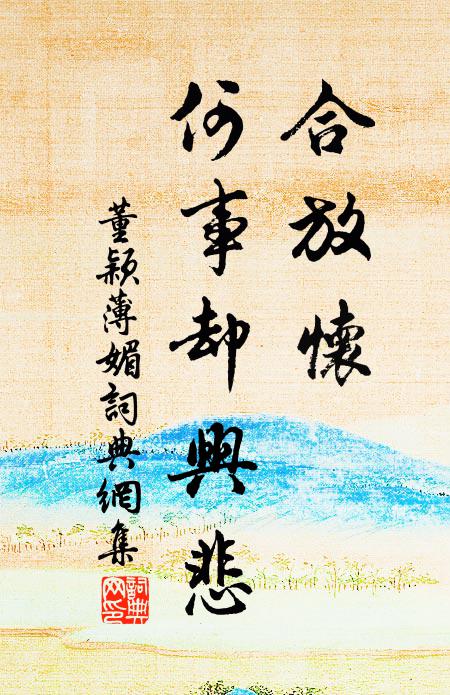 合放懷
何事却興悲
董穎薄媚詞典網集
詞典網印